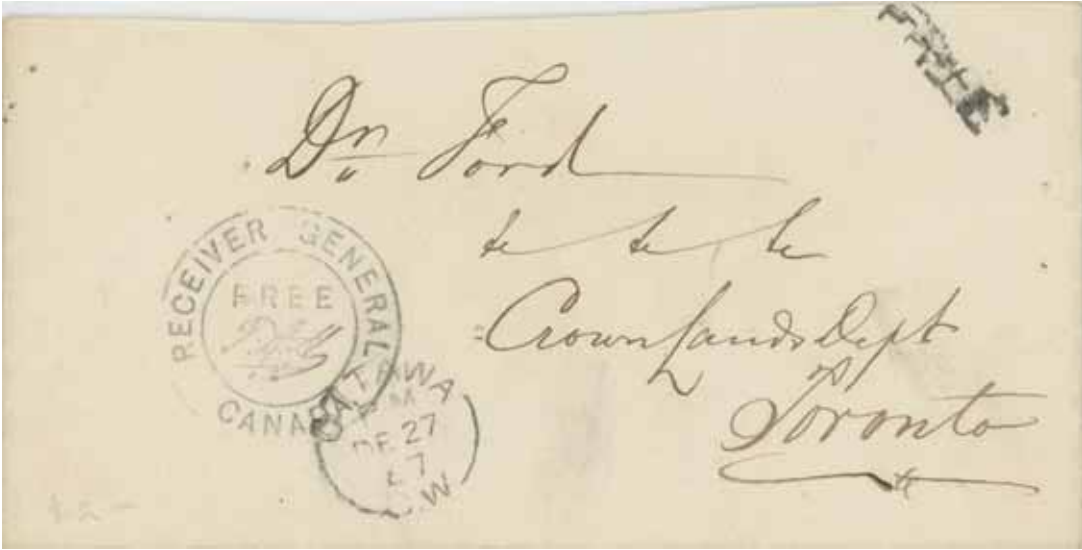 Dr Ford
&c &c &c
Crown Lands Dept
Toronto
RECEIVER GENERAL
FREE
CANADA
OTTAWA
DE 27
67
W